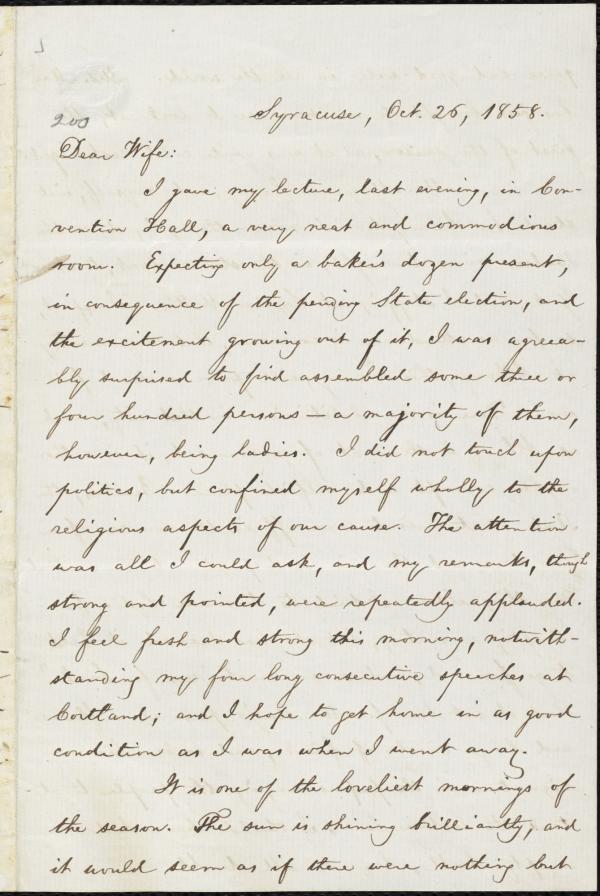 200
Syracuse, Oct. 26, 1858.
Dear Wife:
I gave my lecture, last evening, in Con-
vention Hall, a very neat and commodious
room. Expecting only a baker's dozen present,
in consequence of the pending State election, and
the excitement growing out of it, I was agreea-
bly surprised to find assembled some thee or
four hundred persons — a majority of them,
however, being ladies. I did not touch upon
politics, but confined myself wholly to the
religious aspects of our cause. The attention
was all I could ask, and my remarks, though
strong and pointed, were repeatedly applauded.
I feel fresh and strong this morning, notwith-
standing my four long consecutive speeches at
Cortland; and I hope to get home in as good
condition as I was when I went away.
It is one of the loveliest mornings of
the season. The sun is shining brilliantly, and
it would seem as if there were nothing but